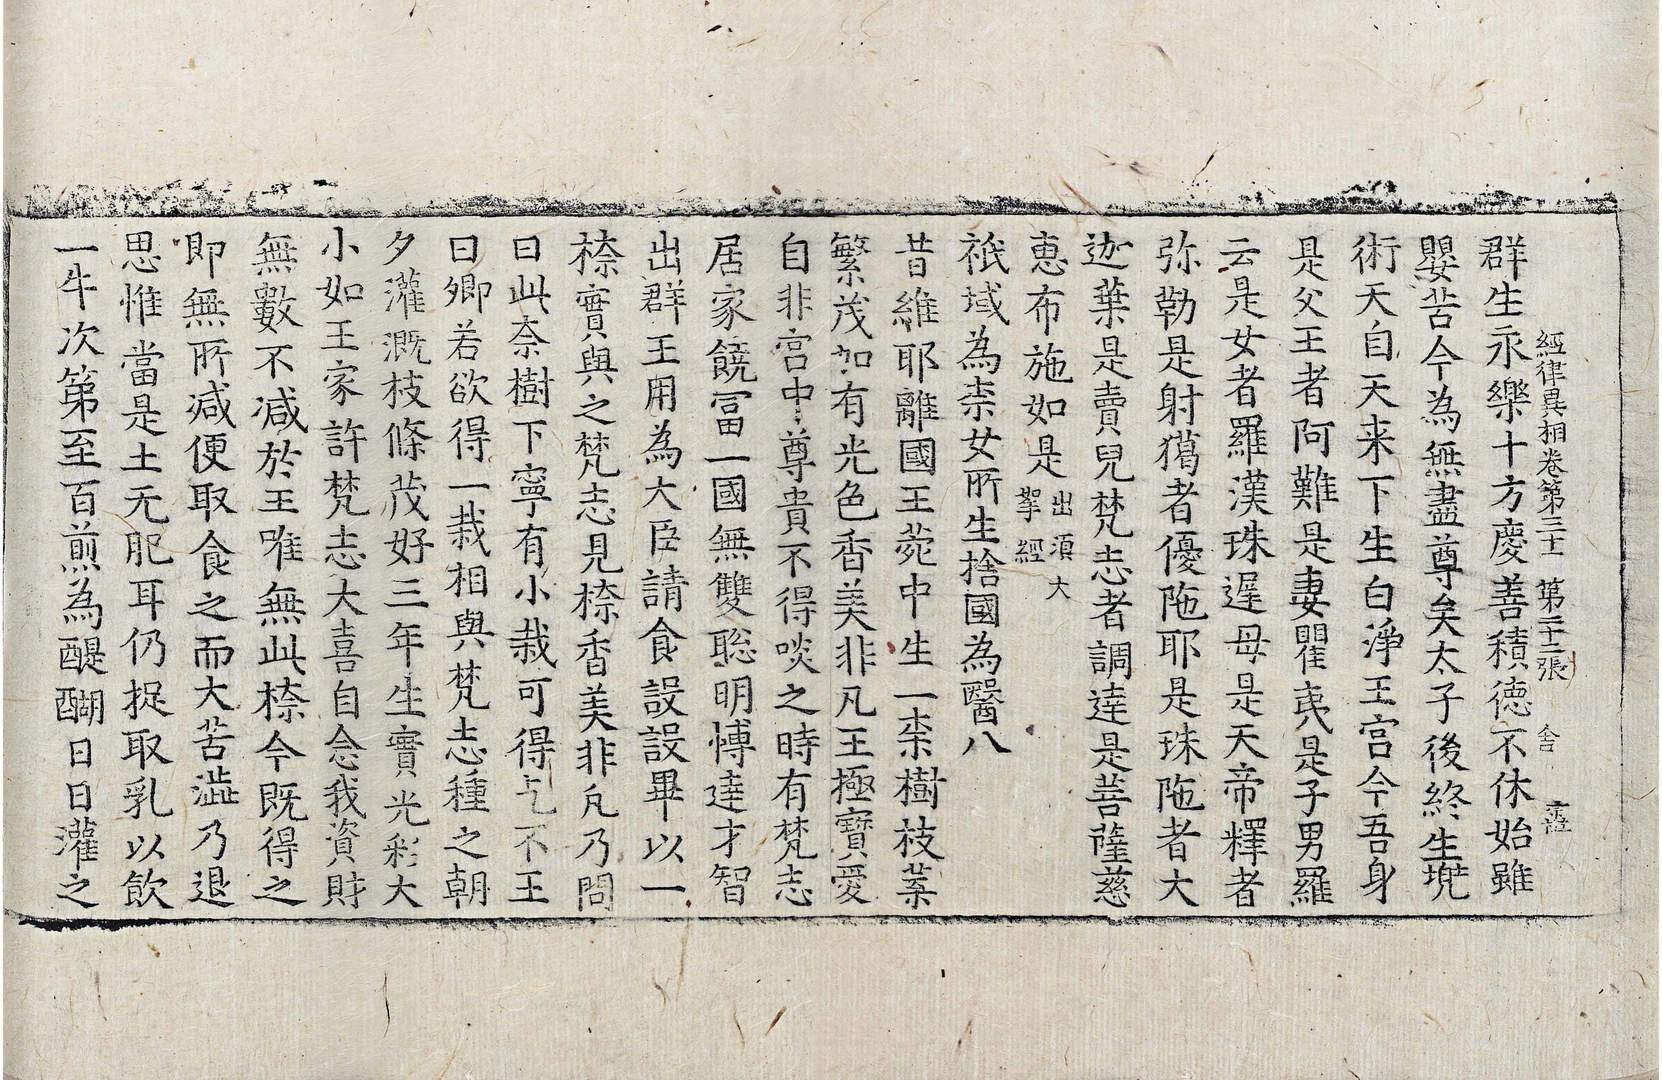 經律異相卷第三十一 第二十二張 舍
群生永樂十方慶善積德不休始雖
嬰苦今為無盡尊矣太子後終生兠
術天自天来下生白淨王宮今吾身
是父王者阿難是妻瞿夷是子男羅
云是女者羅漢珠遲母是天帝釋者
弥勒是射獦者優陁耶是珠陁者大
迦葉是賣兒梵志者調達是菩薩慈
惠布施如是
出須大
拏經
祇域為柰女所生捨國為醫八
昔維耶離國王菀中生一柰樹枝葉
繁茂加有光色香美非凡王極寶愛
自非宮中尊貴不得啖之時有梵志
居家饒冨一國無雙聡明博達才智
出群王用為大臣請食設設畢以一
㮈實與之梵志見㮈香美非凡乃問
曰此柰樹下寧有小栽可得乞不王
曰卿若欲得一栽相與梵志種之朝
夕灌溉枝條茂好三年生實光彩大
小如王家許梵志大喜自念我資財
無數不减於王唯無此㮈今既得之
即無所减便取食之而大苦澁乃退
思惟當是土无肥耳仍捉取乳以飲
一牛次第至百煎為醍醐日日灌之